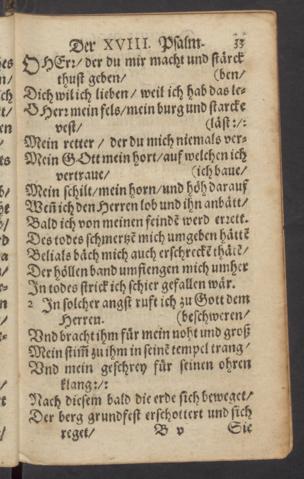 Der XVIII. Psalm. 33
O HErr/ der du mir macht und stärck
thust geben/ (ben/
Dich wil ich lieben/ weil ich hab das le-
O Herr mein fels/ mein burg und starcke
vest/ (läst:/:
Mein retter/ der du mich niemals ver-
Mein GOtt mein hort/ auf welchen ich
vertraue/ (ich baue/
Mein schilt/ mein horn/ und höh darauf
Weñ ich den Herren lob und ihn anbätt/
Bald ich von meinen feindẽ werd errett.
Des todes schmertzẽ mich umgeben hättẽ
Belials bäch mich auch erschreckẽ thätẽ/
Der höllen band umfiengen mich umher
In todes strick ich schier gefallen wär.
2 In solcher angst ruft ich zu Gott dem
Herren. (beschweren/
Vnd bracht ihm für mein noht und groß
Mein stim̃ zu ihm in seinẽ tempel trang/
Vnd mein geschrey für seinen ohren
klang:/:
Nach diesem bald die erde sich beweget/
Der berg grundfest erschottert und sich
reget/ B v Sie